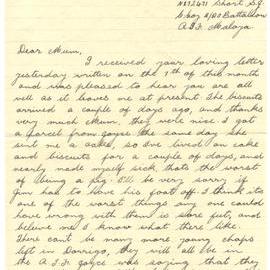 Short S.J.
A.I.F. Malaya
Dear Mum,
I received your loving letter
yesterday written on the 7th of this month
and was pleased to hear you are all
well as it leaves me at present. The biscuits
arrived a couple of days ago, and thanks
very much Mum, they were nice. I got
a parcel from Joyce the same day she
sent me a cake, so I've lived on cake
and biscuits for a couple of days, and
nearly made myself sick, that's the worst
of being a pig. I'll be very sorry if
Jim has to have his foot off. I think its
one of the worst things any one could
have wrong with them is sore feet, and
believe me I know what there like.
There cant be many more young chaps
left in Dorrigo, they will all be in
the A.I.F. Joyce was saying that they